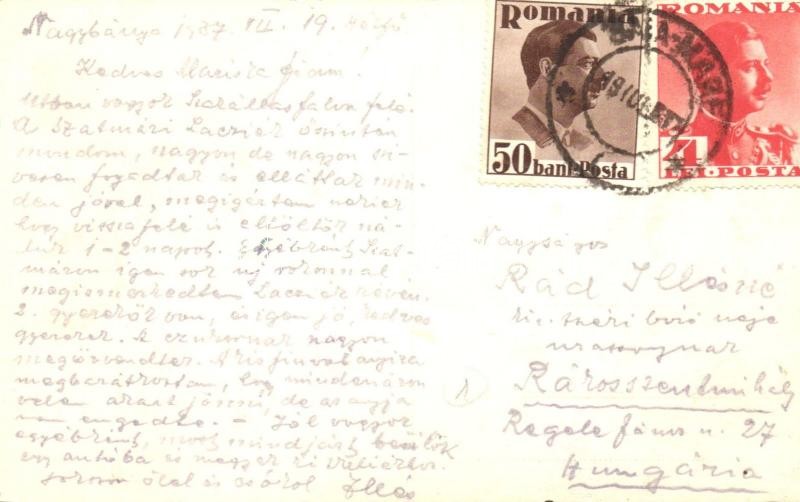 Nagybánya 1937. VII. 19. hétfő
Kedves Mariska fiam!
Utban vagyok falva felé.
A Szatmári Lacziék
mondom, nagyon de nagyon szi-
vesen fogadtak és elláttak min-
den jóval, megigértem nekik
hogy visszafelé is eltöltök ná-
luk 1-2 napot. Egyébként Szat-
máron igen sok uj rokonnal
megismerkedtem Lacziék révén.
2. gyerekök van, és igen jó, kedves
gyerekek. A czukornak nagyon
megörvendtek. A kis fiuval annyira
megbarátkoztam, hogy mindenáron
velem akart jönni, de az anyja
nem engedte. - Jól vagyok
egyébként, most mindjárt beülök
egy autóba és megyek ki
sokszor ölel és csókol Illés
ROMANIA
50 bani. Posta
ROMANIA
4
LEI. POSTA
BAIA-MARE
Nagyságos
Rád Illésné
kir. neje
urasszonynak
Rákosszentmihály
Regele János u. 27
Hungária
1